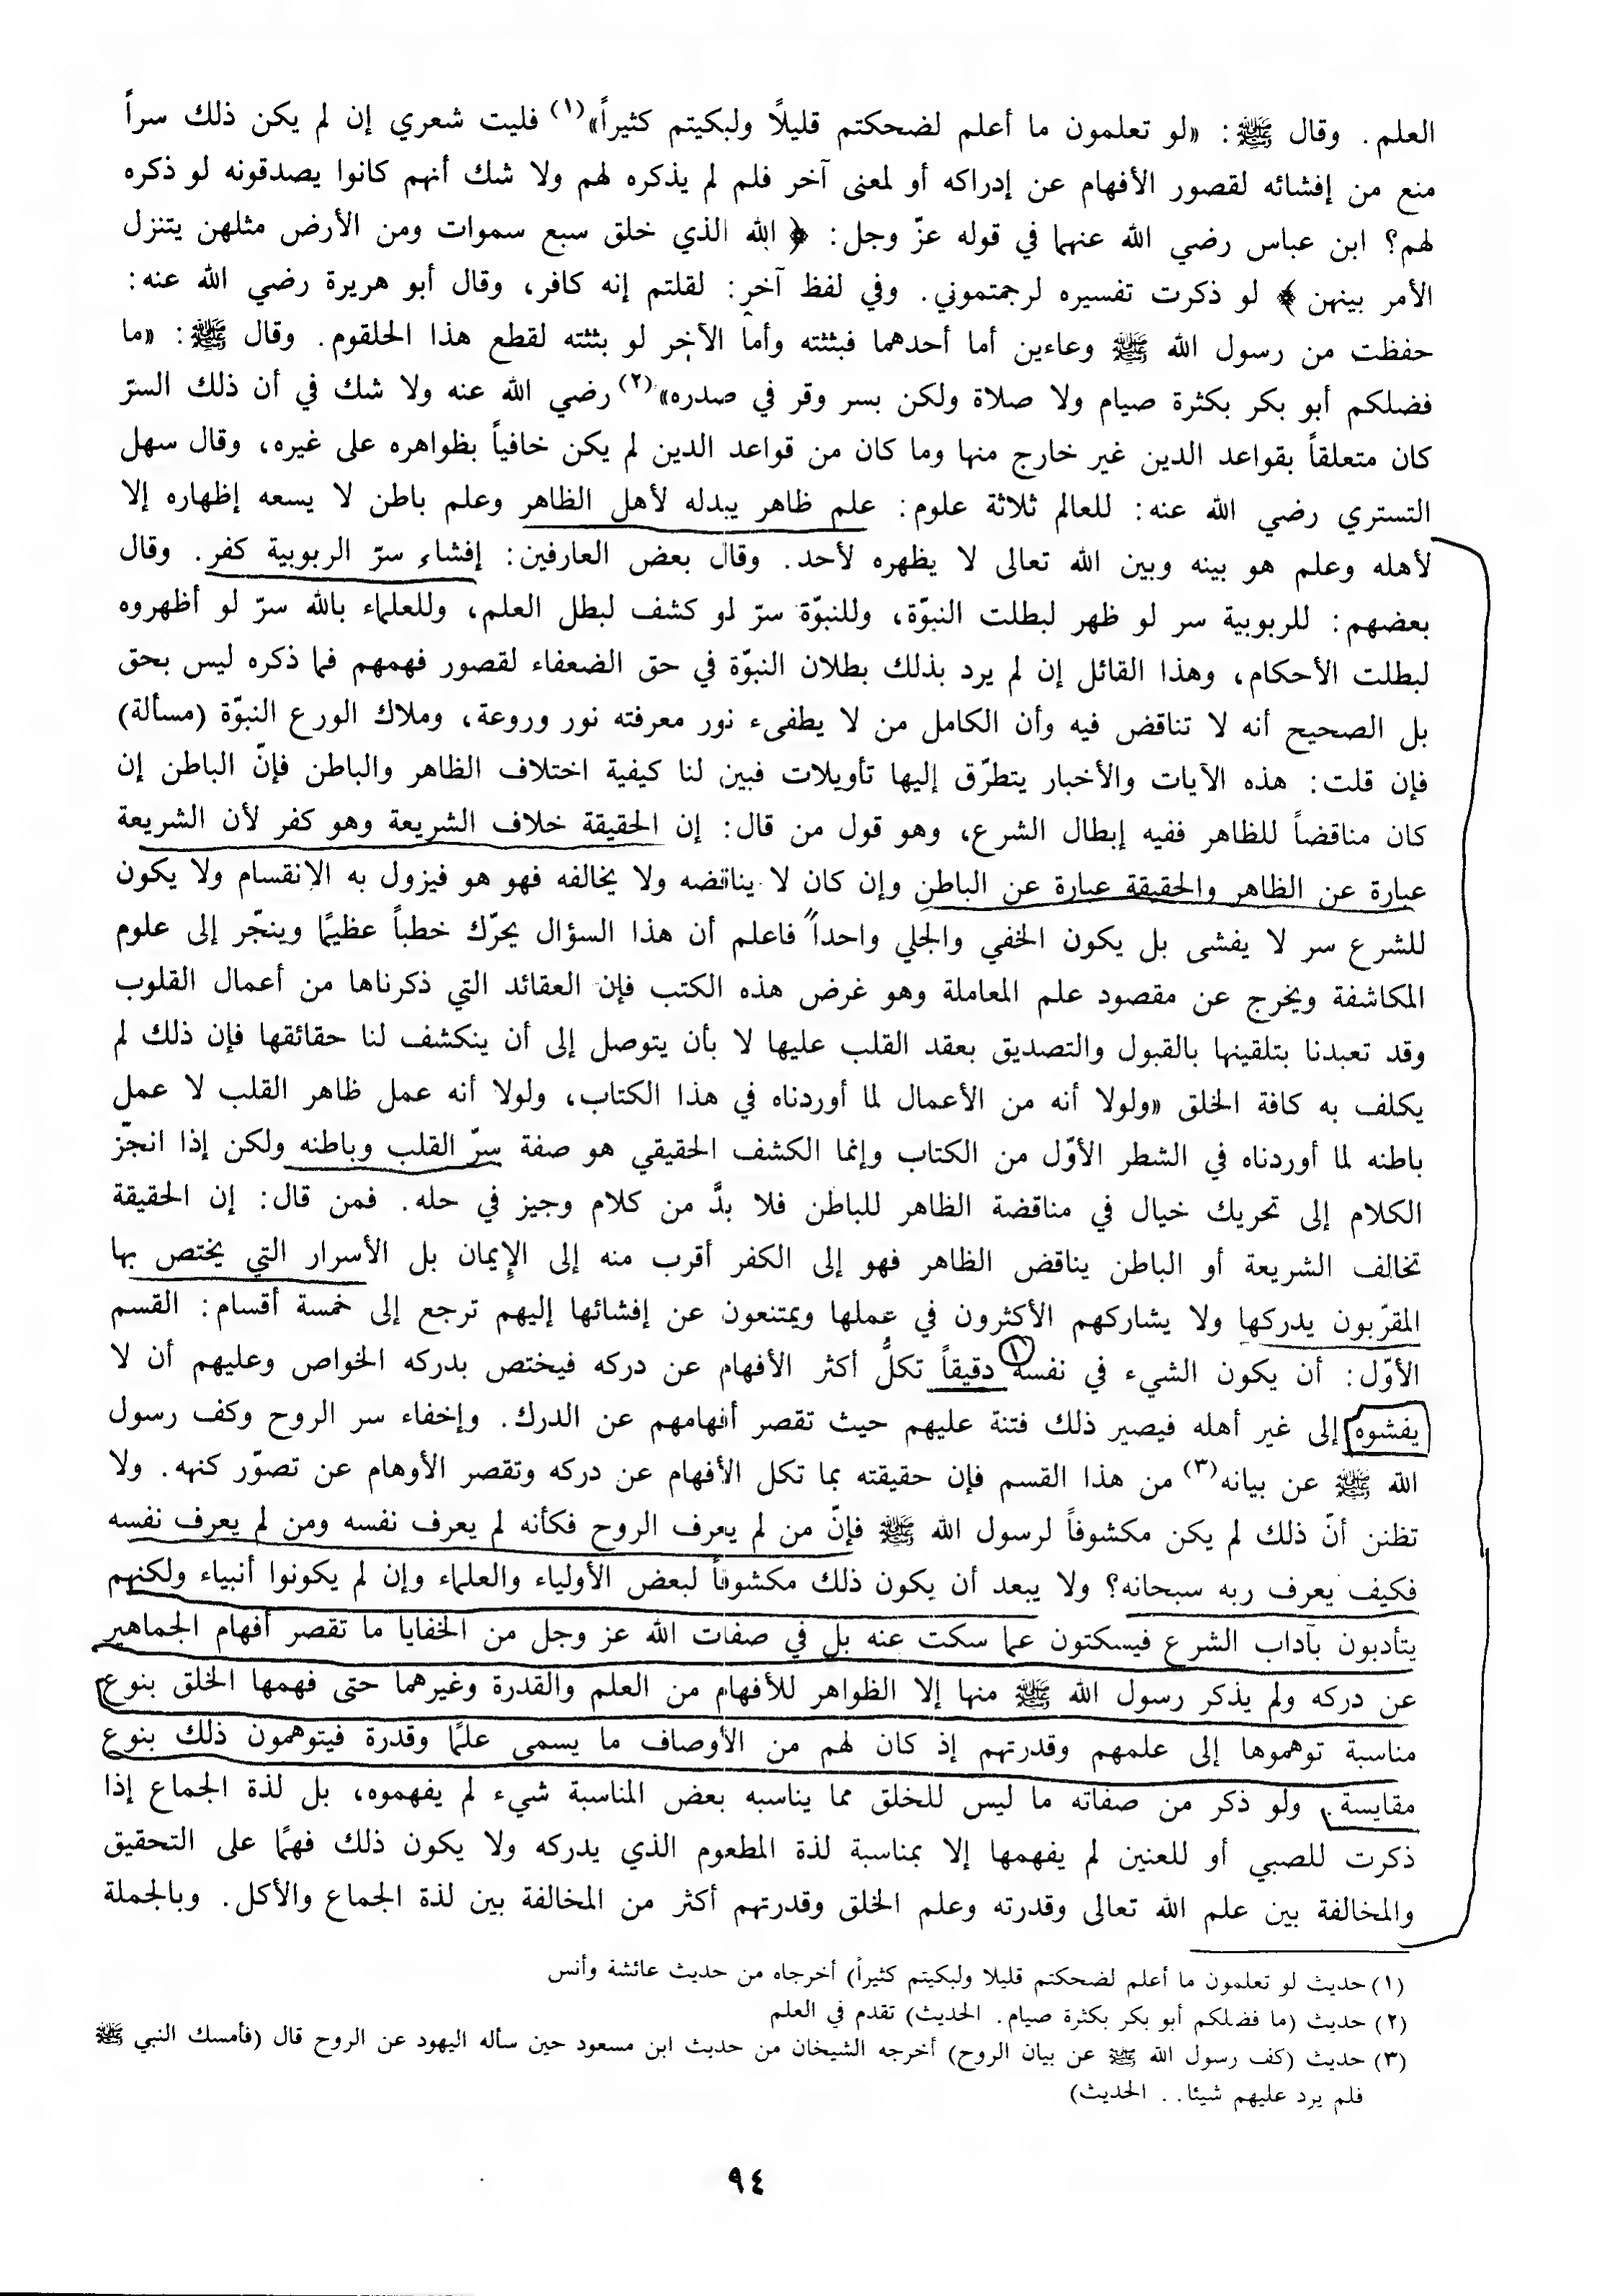 العلم. وقال ﷺ: «لو تعلمون ما أعلم لضحكتم قليلاً ولبكيتم كثيراً»(١) فليت شعري إن لم يكن ذلك سراً
منع من إفشائه لقصور الأفهام عن إدراكه أو لمعنى آخر فلم لم يذكره لهم ولا شك أنهم كانوا يصدقونه لو ذكره
لهم؟ ابن عباس رضي الله عنهما في قوله عزّ وجل: ﴿ الله الذي خلق سبع سموات ومن الأرض مثلهن يتنزل
الأمر بينهن ﴾ لو ذكرت تفسيره لرجمتموني. وفي لفظ آخر: لقلتم إنه كافر، وقال أبو هريرة رضي الله عنه:
حفظت من رسول الله ﷺ وعاءين أما أحدهما فبثثته وأما الآخر لو بثثته لقطع هذا الحلقوم. وقال ﷺ: «ما
فضلكم أبو بكر بكثرة صيام ولا صلاة ولكن بسر وقر في صدره»(٢) رضي الله عنه ولا شك في أن ذلك السرّ
كان متعلقاً بقواعد الدين غير خارج منها وما كان من قواعد الدين لم يكن خافياً بظواهره على غيره، وقال سهل
التستري رضي الله عنه: للعالم ثلاثة علوم: علم ظاهر يبدله لأهل الظاهر وعلم باطن لا يسعه إظهاره إلا
لأهله وعلم هو بينه وبين الله تعالى لا يظهره لأحد. وقال بعض العارفين: إفشاء سرّ الربوبية كفر. وقال
بعضهم: للربوبية سر لو ظهر لبطلت النبوّة، وللنبوّة سرّ لو كشف لبطل العلم، وللعلماء بالله سرّ لو أظهروه
لبطلت الأحكام، وهذا القائل إن لم يرد بذلك بطلان النبوّة في حق الضعفاء لقصور فهمهم فما ذكره ليس بحق
بل الصحيح أنه لا تناقض فيه وأن الكامل من لا يطفىء نور معرفته نور وروعة، وملاك الورع النبوّة (مسألة)
فإن قلت: هذه الآيات والأخبار يتطرّق إليها تأويلات فبين لنا كيفية اختلاف الظاهر والباطن فإنّ الباطن إن
كان مناقضاً للظاهر ففيه إبطال الشرع، وهو قول من قال: إن الحقيقة خلاف الشريعة وهو كفر لأن الشريعة
عبارة عن الظاهر والحقيقة عبارة عن الباطن وإن كان لا يناقضه ولا يخالفه فهو هو فيزول به الإنقسام ولا يكون
للشرع سر لا يفشى بل يكون الخفي والجلي واحداً فاعلم أن هذا السؤال يحرّك خطباً عظيمًا وينجّر إلى علوم
المكاشفة ويخرج عن مقصود علم المعاملة وهو غرض هذه الكتب فإن العقائد التي ذكرناها من أعمال القلوب
وقد تعبدنا بتلقينها بالقبول والتصديق بعقد القلب عليها لا بأن يتوصل إلى أن ينكشف لنا حقائقها فإن ذلك لم
يكلف به كافة الخلق «ولولا أنه من الأعمال لما أوردناه في هذا الكتاب، ولولا أنه عمل ظاهر القلب لا عمل
باطنه لما أوردناه في الشطر الأوّل من الكتاب وإنما الكشف الحقيقي هو صفة سرّ القلب وباطنه ولكن إذا انجّر
الكلام إلى تحريك خيال في مناقضة الظاهر للباطن فلا بدَّ من كلام وجيز في حله. فمن قال: إن الحقيقة
تخالف الشريعة أو الباطن يناقض الظاهر فهو إلى الكفر أقرب منه إلى الإيمان بل الأسرار التي يختص بها
المقرّبون يدركها ولا يشاركهم الأكثرون في عملها ويمتنعون عن إفشائها إليهم ترجع إلى خمسة أقسام: القسم
الأوّل: أن يكون الشيء في نفسه ١ دقيقاً تكلُّ أكثر الأفهام عن دركه فيختص بدركه الخواص وعليهم أن لا
يفشوه إلى غير أهله فيصير ذلك فتنة عليهم حيث تقصر أفهامهم عن الدرك. وإخفاء سر الروح وكف رسول
الله ﷺ عن بيانه(٣) من هذا القسم فإن حقيقته بما تكل الأفهام عن دركه وتقصر الأوهام عن تصوّر كنهه. ولا
تظنن أنّ ذلك لم يكن مكشوفاً لرسول الله ﷺ فإنّ من لم يعرف الروح فكأنه لم يعرف نفسه ومن لم يعرف نفسه
فكيف يعرف ربه سبحانه؟ ولا يبعد أن يكون ذلك مكشوفاً لبعض الأولياء والعلماء وإن لم يكونوا أنبياء ولكنهم
يتأدبون بآداب الشرع فيسكتون عما سكت عنه بل في صفات الله عز وجل من الخفايا ما تقصر أفهام الجماهير
عن دركه ولم يذكر رسول الله ﷺ منها إلا الظواهر للأفهام من العلم والقدرة وغيرهما حتى فهمها الخلق بنوع
مناسبة توهموها إلى علمهم وقدرتهم إذ كان لهم من الأوصاف ما يسمى علمًا وقدرة فيتوهمون ذلك بنوع
مقايسة. ولو ذكر من صفاته ما ليس للخلق مما يناسبه بعض المناسبة شيء لم يفهموه، بل لذة الجماع إذا
ذكرت للصبي أو للعنين لم يفهمها إلا بمناسبة لذة المطعوم الذي يدركه ولا يكون ذلك فهمًا على التحقيق
والمخالفة بين علم الله تعالى وقدرته وعلم الخلق وقدرتهم أكثر من المخالفة بين لذة الجماع والأكل. وبالجملة
(١) حديث لو تعلمون ما أعلم لضحكتم قليلا ولبكيتم كثيراً) أخرجاه من حديث عائشة وأنس
(٢) حديث (ما فضلكم أبو بكر بكثرة صيام. الحديث) تقدم في العلم
(٣) حديث (كف رسول الله ﷺ عن بيان الروح) أخرجه الشيخان من حديث ابن مسعود حين سأله اليهود عن الروح قال (فأمسك النبي ﷺ
فلم يرد عليهم شيئا. . الحديث)
٩٤